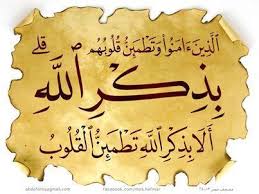 الَّذِينَ آمَنُوا وَتَطْمَئِنُّ قُلُوبُهُم
بِذِكْرِ اللَّهِ ۗ
أَلَا بِذِكْرِ اللَّهِ تَطْمَئِنُّ الْقُلُوبُ